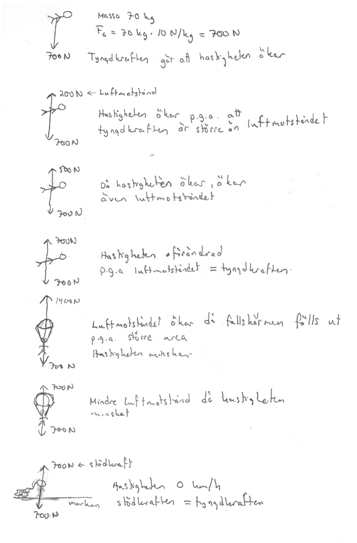 Massa 70 kg
FG = 70 kg · 10 N/kg = 700 N
700N Tyngdkraften gör att hastigheten ökar
200N ← Luftmotstånd
Hastigheten ökar p.g.a. att
tyngdkraften är större än luftmotståndet
700N
500N
Då hastigheten ökar, ökar
även luftmotståndet
700N
700N
Hastigheten oförändrad
p.g.a luftmotståndet = tyngdkraften.
700N
1400N
Luftmotståndet ökar då fallskärmen fälls ut
p.g.a. större area
Hastigheten minskar
700N
700N
Mindre luftmotstånd då hastigheten
minskat
700N
700N ← stödkraft
Hastigheten 0 km/h
marken stödkraften = tyngdkraften
700N